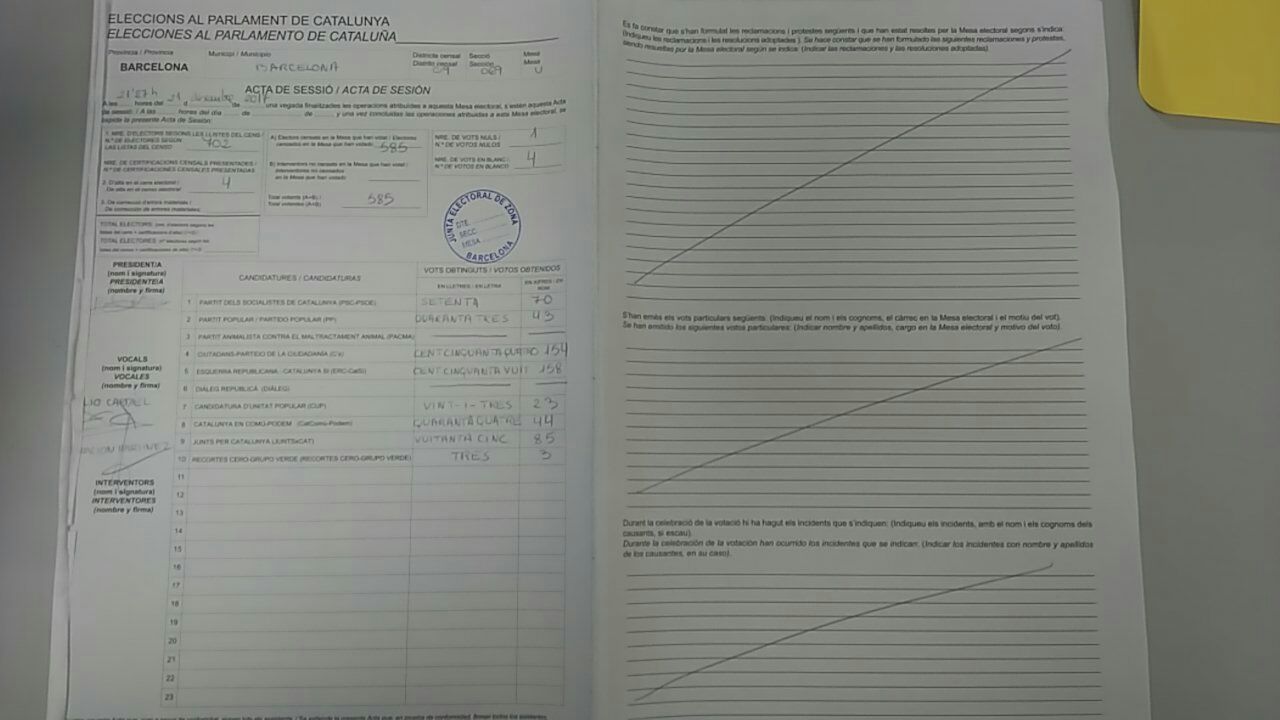 ELECCIONS AL PARLAMENT DE CATALUNYA
ELECCIONES AL PARLAMENTO DE CATALUÑA
Província / Provincia
BARCELONA
Municipi / Municipio
BARCELONA
Districte censal
Distrito censal
09
Secció
Sección
069
Mesa
Mesa
U
ACTA DE SESSIÓ / ACTA DE SESIÓN
21'27h 21 diciembre 2017
A les hores del d de una vegada finalitzades les operacions atribuïdes a aquesta Mesa electoral, s'estén aquesta Acta
de sessió. / A las horas del día de de y una vez concluidas las operaciones atribuidas a esta Mesa electoral, se
expide la presente Acta de Sesión:
1. NRE. D'ELECTORS SEGONS LES LLISTES DEL CENS /
N.º DE ELECTORES SEGÚN
LAS LISTAS DEL CENSO
702
NRE. DE CERTIFICACIONS CENSALS PRESENTADES /
N.º DE CERTIFICACIONES CENSALES PRESENTADAS
2. D'alta en el cens electoral /
De alta en el censo electoral
4
3. De correcció d'errors materials /
De corrección de errores materiales
A) Electors censats en la Mesa que han votat / Electores
censados en la Mesa que han votado
585
B) Interventors no censats en la Mesa que han votat /
Interventores no censados
en la Mesa que han votado
Total votants (A+B) /
Total votantes (A+B)
585
NRE. DE VOTS NULS /
N.º DE VOTOS NULOS
1
NRE. DE VOTS EN BLANC /
N.º DE VOTOS EN BLANCO
4
JUNTA ELECTORAL DE ZONA
DTE.
SECC.
MESA
BARCELONA
PRESIDENT/A
(nom i signatura)
PRESIDENTE/A
(nombre y firma)
CANDIDATURES / CANDIDATURAS
VOTS OBTINGUTS / VOTOS OBTENIDOS
EN LLETRES / EN LETRA
EN XIFRES / EN
NÚM.
1 PARTIT DELS SOCIALISTES DE CATALUNYA (PSC-PSOE) SETENTA 70
2 PARTIT POPULAR / PARTIDO POPULAR (PP) QUARANTA TRES 43
3 PARTIT ANIMALISTA CONTRA EL MALTRACTAMENT ANIMAL (PACMA)
4 CIUTADANS-PARTIDO DE LA CIUDADANÍA (C's) CENT CINQUANTA QUATRO 154
5 ESQUERRA REPUBLICANA - CATALUNYA SÍ (ERC-CatSí) CENT CINQUANTA VUIT 158
6 DIÀLEG REPUBLICÀ (DIÀLEG)
7 CANDIDATURA D'UNITAT POPULAR (CUP) VINT-I-TRES 23
8 CATALUNYA EN COMÚ-PODEM (CatComú-Podem) QUARANTA QUATRE 44
9 JUNTS PER CATALUNYA (JUNTSxCAT) VUITANTA CINC 85
10 RECORTES CERO-GRUPO VERDE (RECORTES CERO-GRUPO VERDE) TRES 3
11
12
13
14
15
16
17
18
19
20
21
22
23
VOCALS
(nom i signatura)
VOCALES
(nombre y firma)
INTERVENTORS
(nom i signatura)
INTERVENTORES
(nombre y firma)
Es fa constar que s'han formulat les reclamacions i protestes següents i que han estat resoltes per la Mesa electoral segons s'indica:
(Indiqueu les reclamacions i les resolucions adoptades). Se hace constar que se han formulado las siguientes reclamaciones y protestas,
siendo resueltas por la Mesa electoral según se indica: (Indicar las reclamaciones y las resoluciones adoptadas).
S'han emès els vots particulars següents: (Indiqueu el nom i els cognoms, el càrrec en la Mesa electoral i el motiu del vot).
Se han emitido los siguientes votos particulares: (Indicar nombre y apellidos, cargo en la Mesa electoral y motivo del voto).
Durant la celebració de la votació hi ha hagut els incidents que s'indiquen: (Indiqueu els incidents, amb el nom i els cognoms dels
causants, si escau).
Durante la celebración de la votación han ocurrido los incidentes que se indican: (Indicar los incidentes con nombre y apellidos
de los causantes, en su caso).